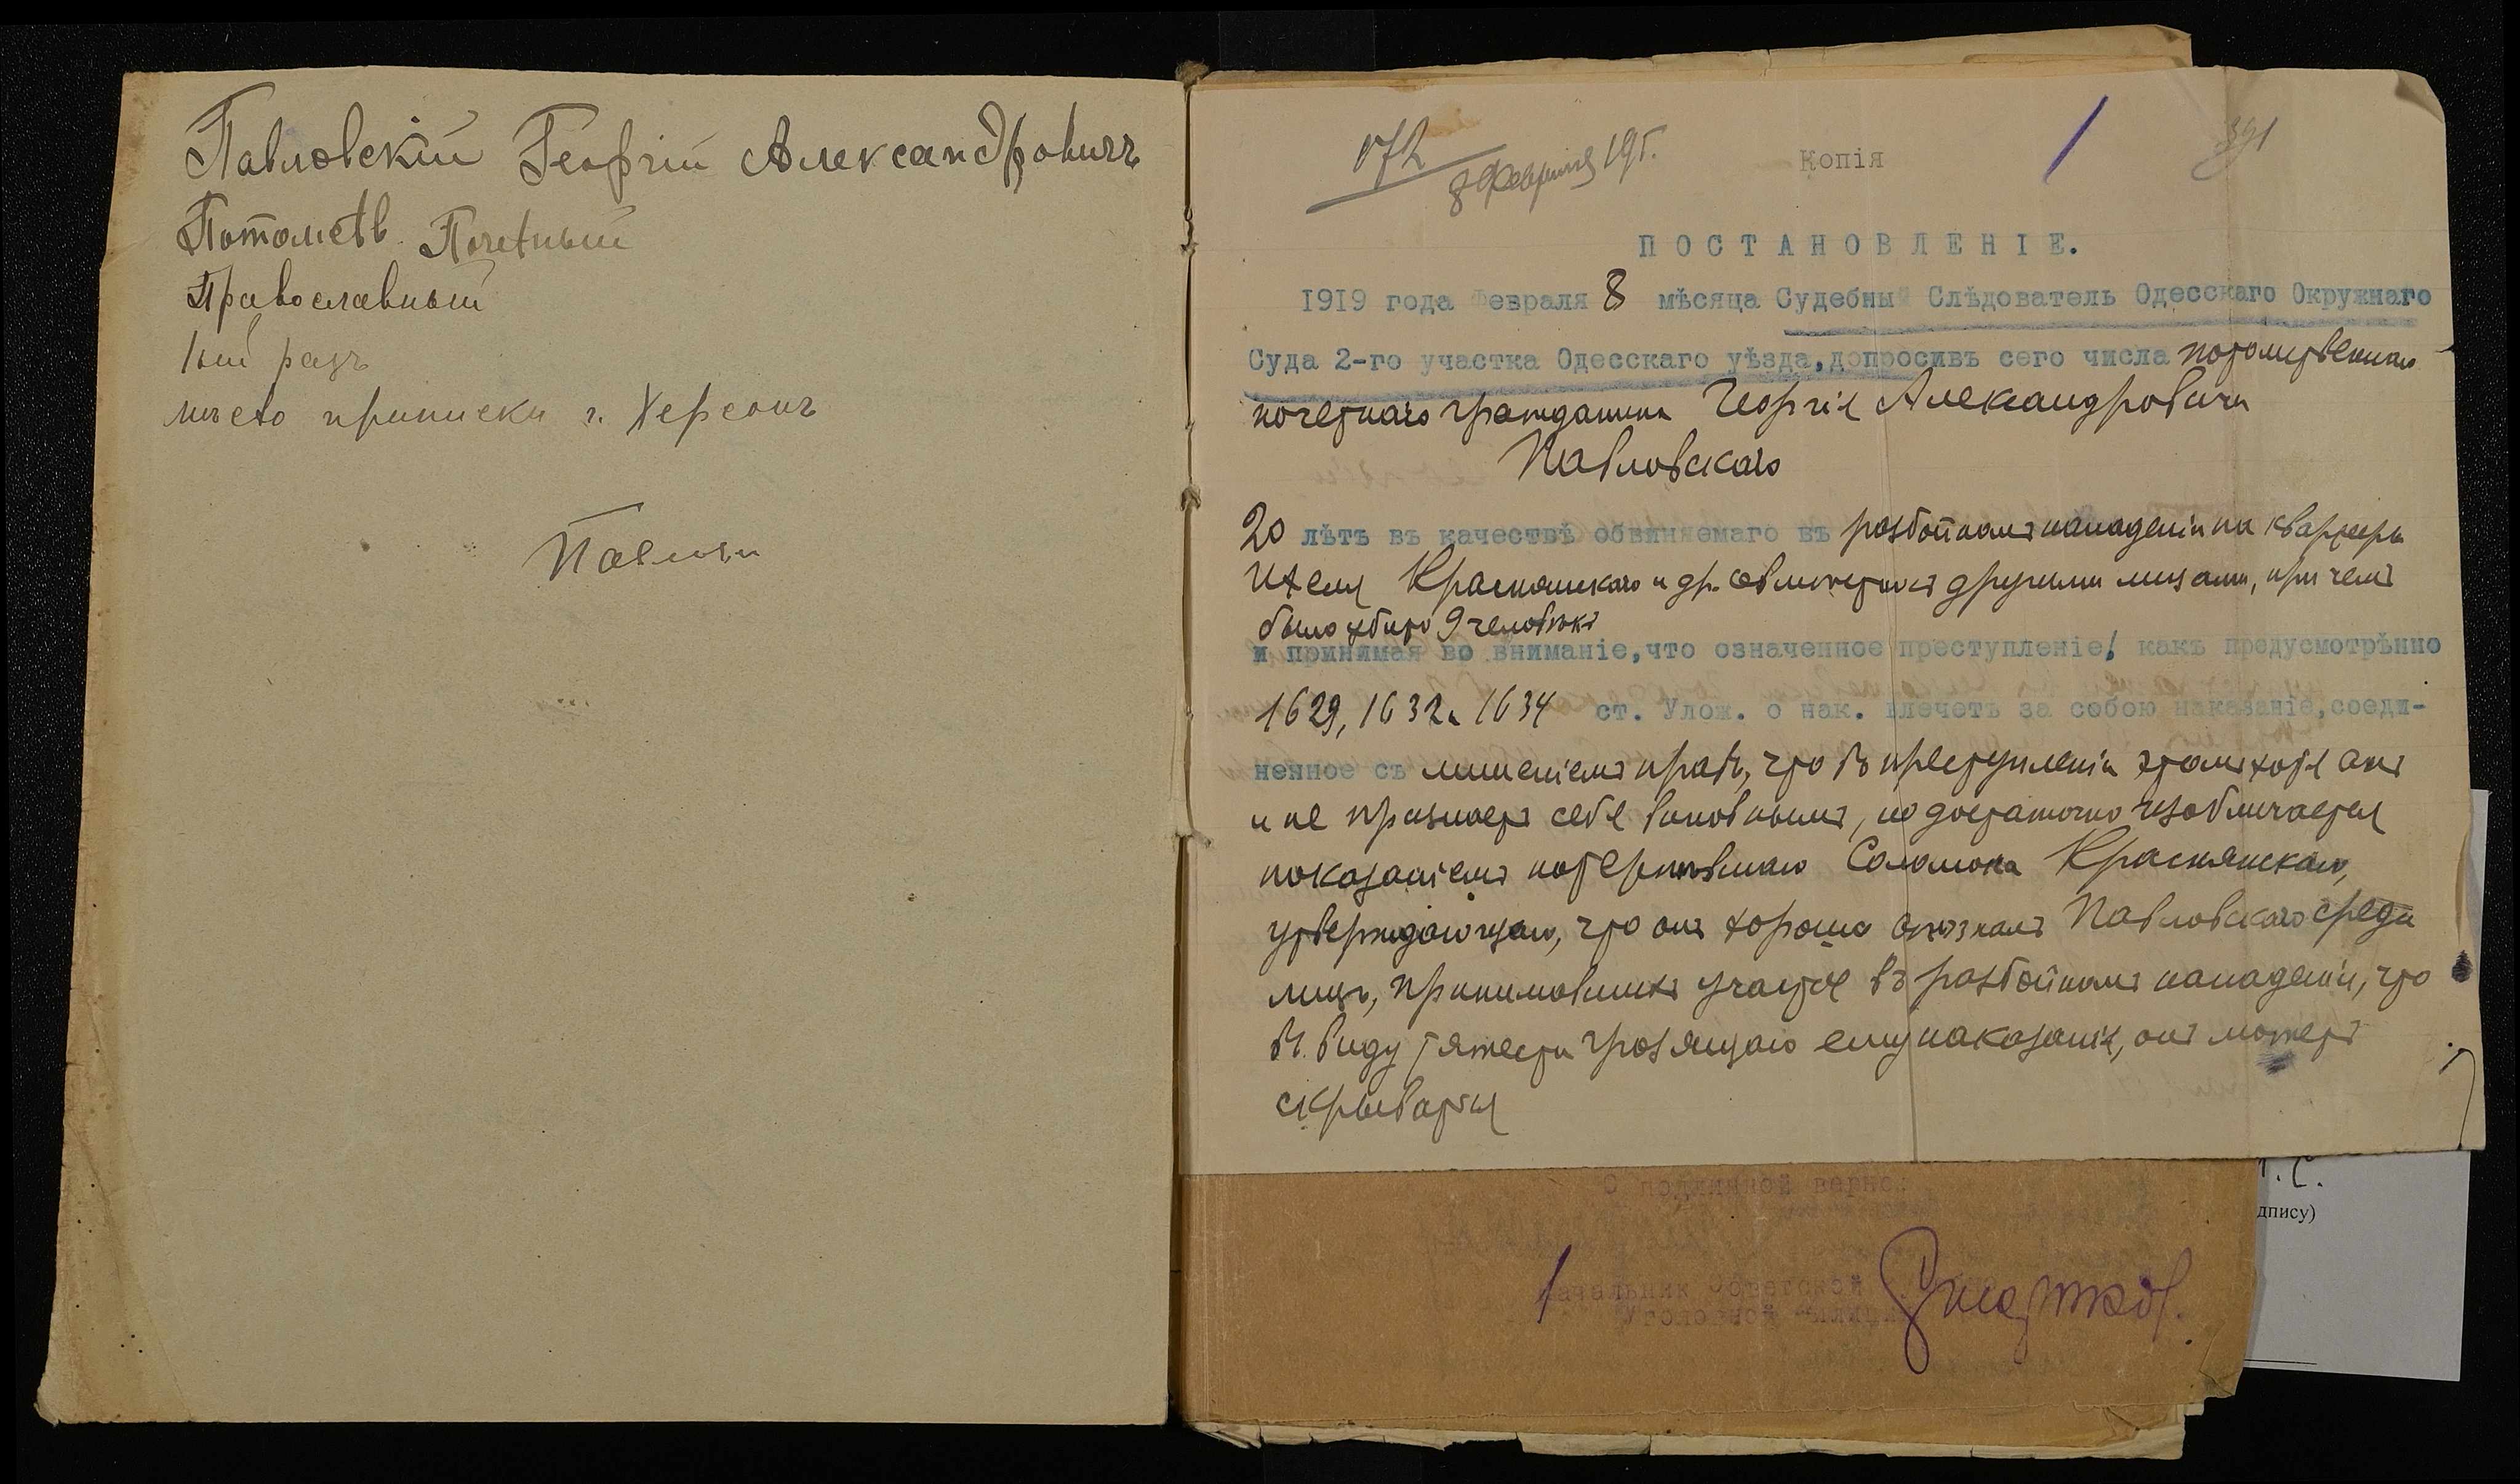 Павловскій Георгій Александровичъ
Потомств. Почетный
Православный
1ый разъ
мѣсто приписки г. Херсонъ
172
8 февраля 19 г.
Копія
1
391
ПОСТАНОВЛЕНІЕ.
1919 года Февраля 8 мѣсяца Судебный Слѣдователь Одесскаго Окружнаго
Суда 2-го участка Одесскаго уѣзда, допросивъ сего числа потомственнаго
почетнаго гражданина Георгія Александровича
Павловскаго
20 лѣтъ въ качествѣ обвиняемаго въ разбойномъ нападеніи на квартиры
Ицеля Краснянскаго и др. совмѣстно съ другими лицами, при чемъ
было убито 9 человѣкъ
и принимая во вниманіе, что означенное преступленіе, какъ предусмотрѣнно
1629, 1632 и 1634 ст. Улож. о нак. влечетъ за собою наказаніе, соеди-
ненное съ лишеніемъ правъ, что въ преступленіи этомъ хотя онъ
и не призналъ себя виновнымъ, но достаточно изобличается
показаніемъ потерпѣвшаго Соломона Краснянскаго,
утверждающаго, что онъ хорошо опозналъ Павловскаго среди
лицъ, принимавшихъ участіе въ разбойномъ нападеніи, что
въ виду тяжести грозящаго ему наказанія, онъ можетъ
скрываться
г. С.
дпису)
С подлинной верно:
1
Начальник Советской
Уголовной Милиции